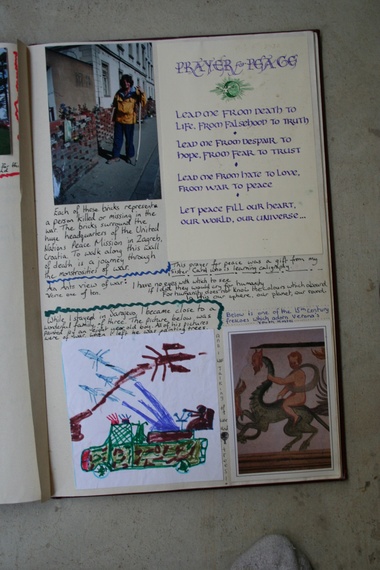 PRAYER for PEACE
LEAD ME FROM DEATH TO
LIFE, FROM FALSEHOOD TO TRUTH
LEAD ME FROM DESPAIR TO
HOPE, FROM FEAR TO TRUST
LEAD ME FROM HATE TO LOVE,
FROM WAR TO PEACE
LET PEACE FILL OUR HEART,
OUR WORLD, OUR UNIVERSE...
Each of these bricks represents
a person killed or missing in the
war. The bricks surround the
huge headquarters of the United
Nations Peace Mission in Zagreb,
Croatia. To walk along this wall
of death is a journey through
the monstrosities of war.
This prayer for peace was a gift from my
sister who is learning calligraphy
An Ants view of war?
I have no eyes with which to see.
If I did they would cry for humanity
For humanity does not know the colours which abound
in this our sphere, our planet, our round.
While I stayed in Sarajevo, I became close to a
wonderful family of three. The picture below, was
painted by an eight year old boy. All of his pictures
were of war. When I left he was painting trees.
Below is one of the 15th century
frescoes which adorn Verona's